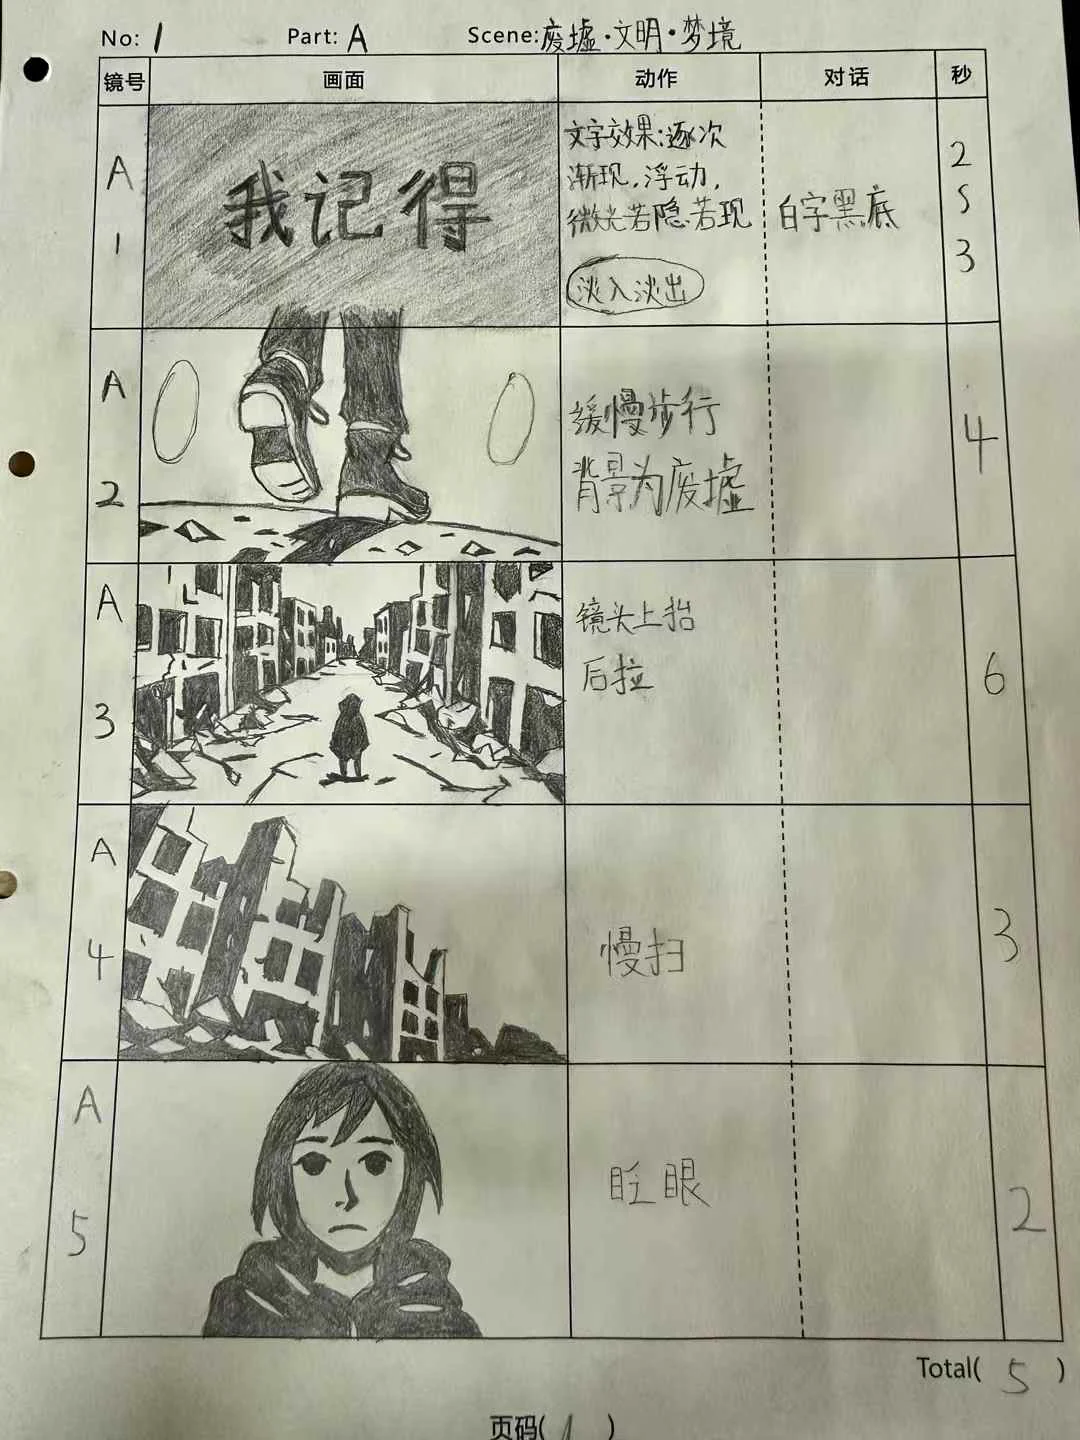 No: 1 Part: A Scene: 废墟·文明·梦境
镜号 画面 动作 对话 秒
A
1
我记得
文字效果:逐次
渐现,浮动,
微光若隐若现
淡入淡出
白字黑底
2
5
3
A
2
缓慢步行
背景为废墟
4
A
3
镜头上抬
后拉
6
A
4
慢扫
3
A
5
眨眼
2
Total( 5 )
页码( 1 )